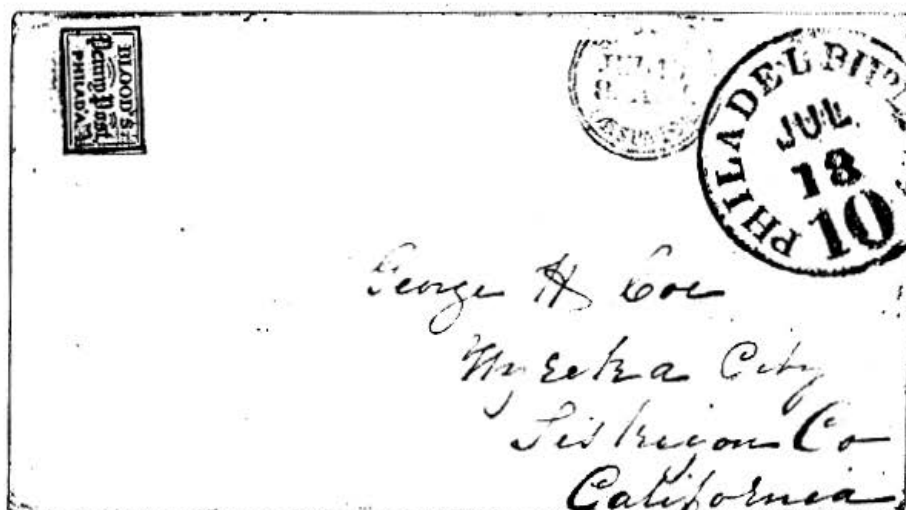 BLOOD'S
Penny Post
PHILAD'A
JUL
PHILADELPHIA
JUL
18
10
George H Coe
Wyreka City
Siskiyou Co
California